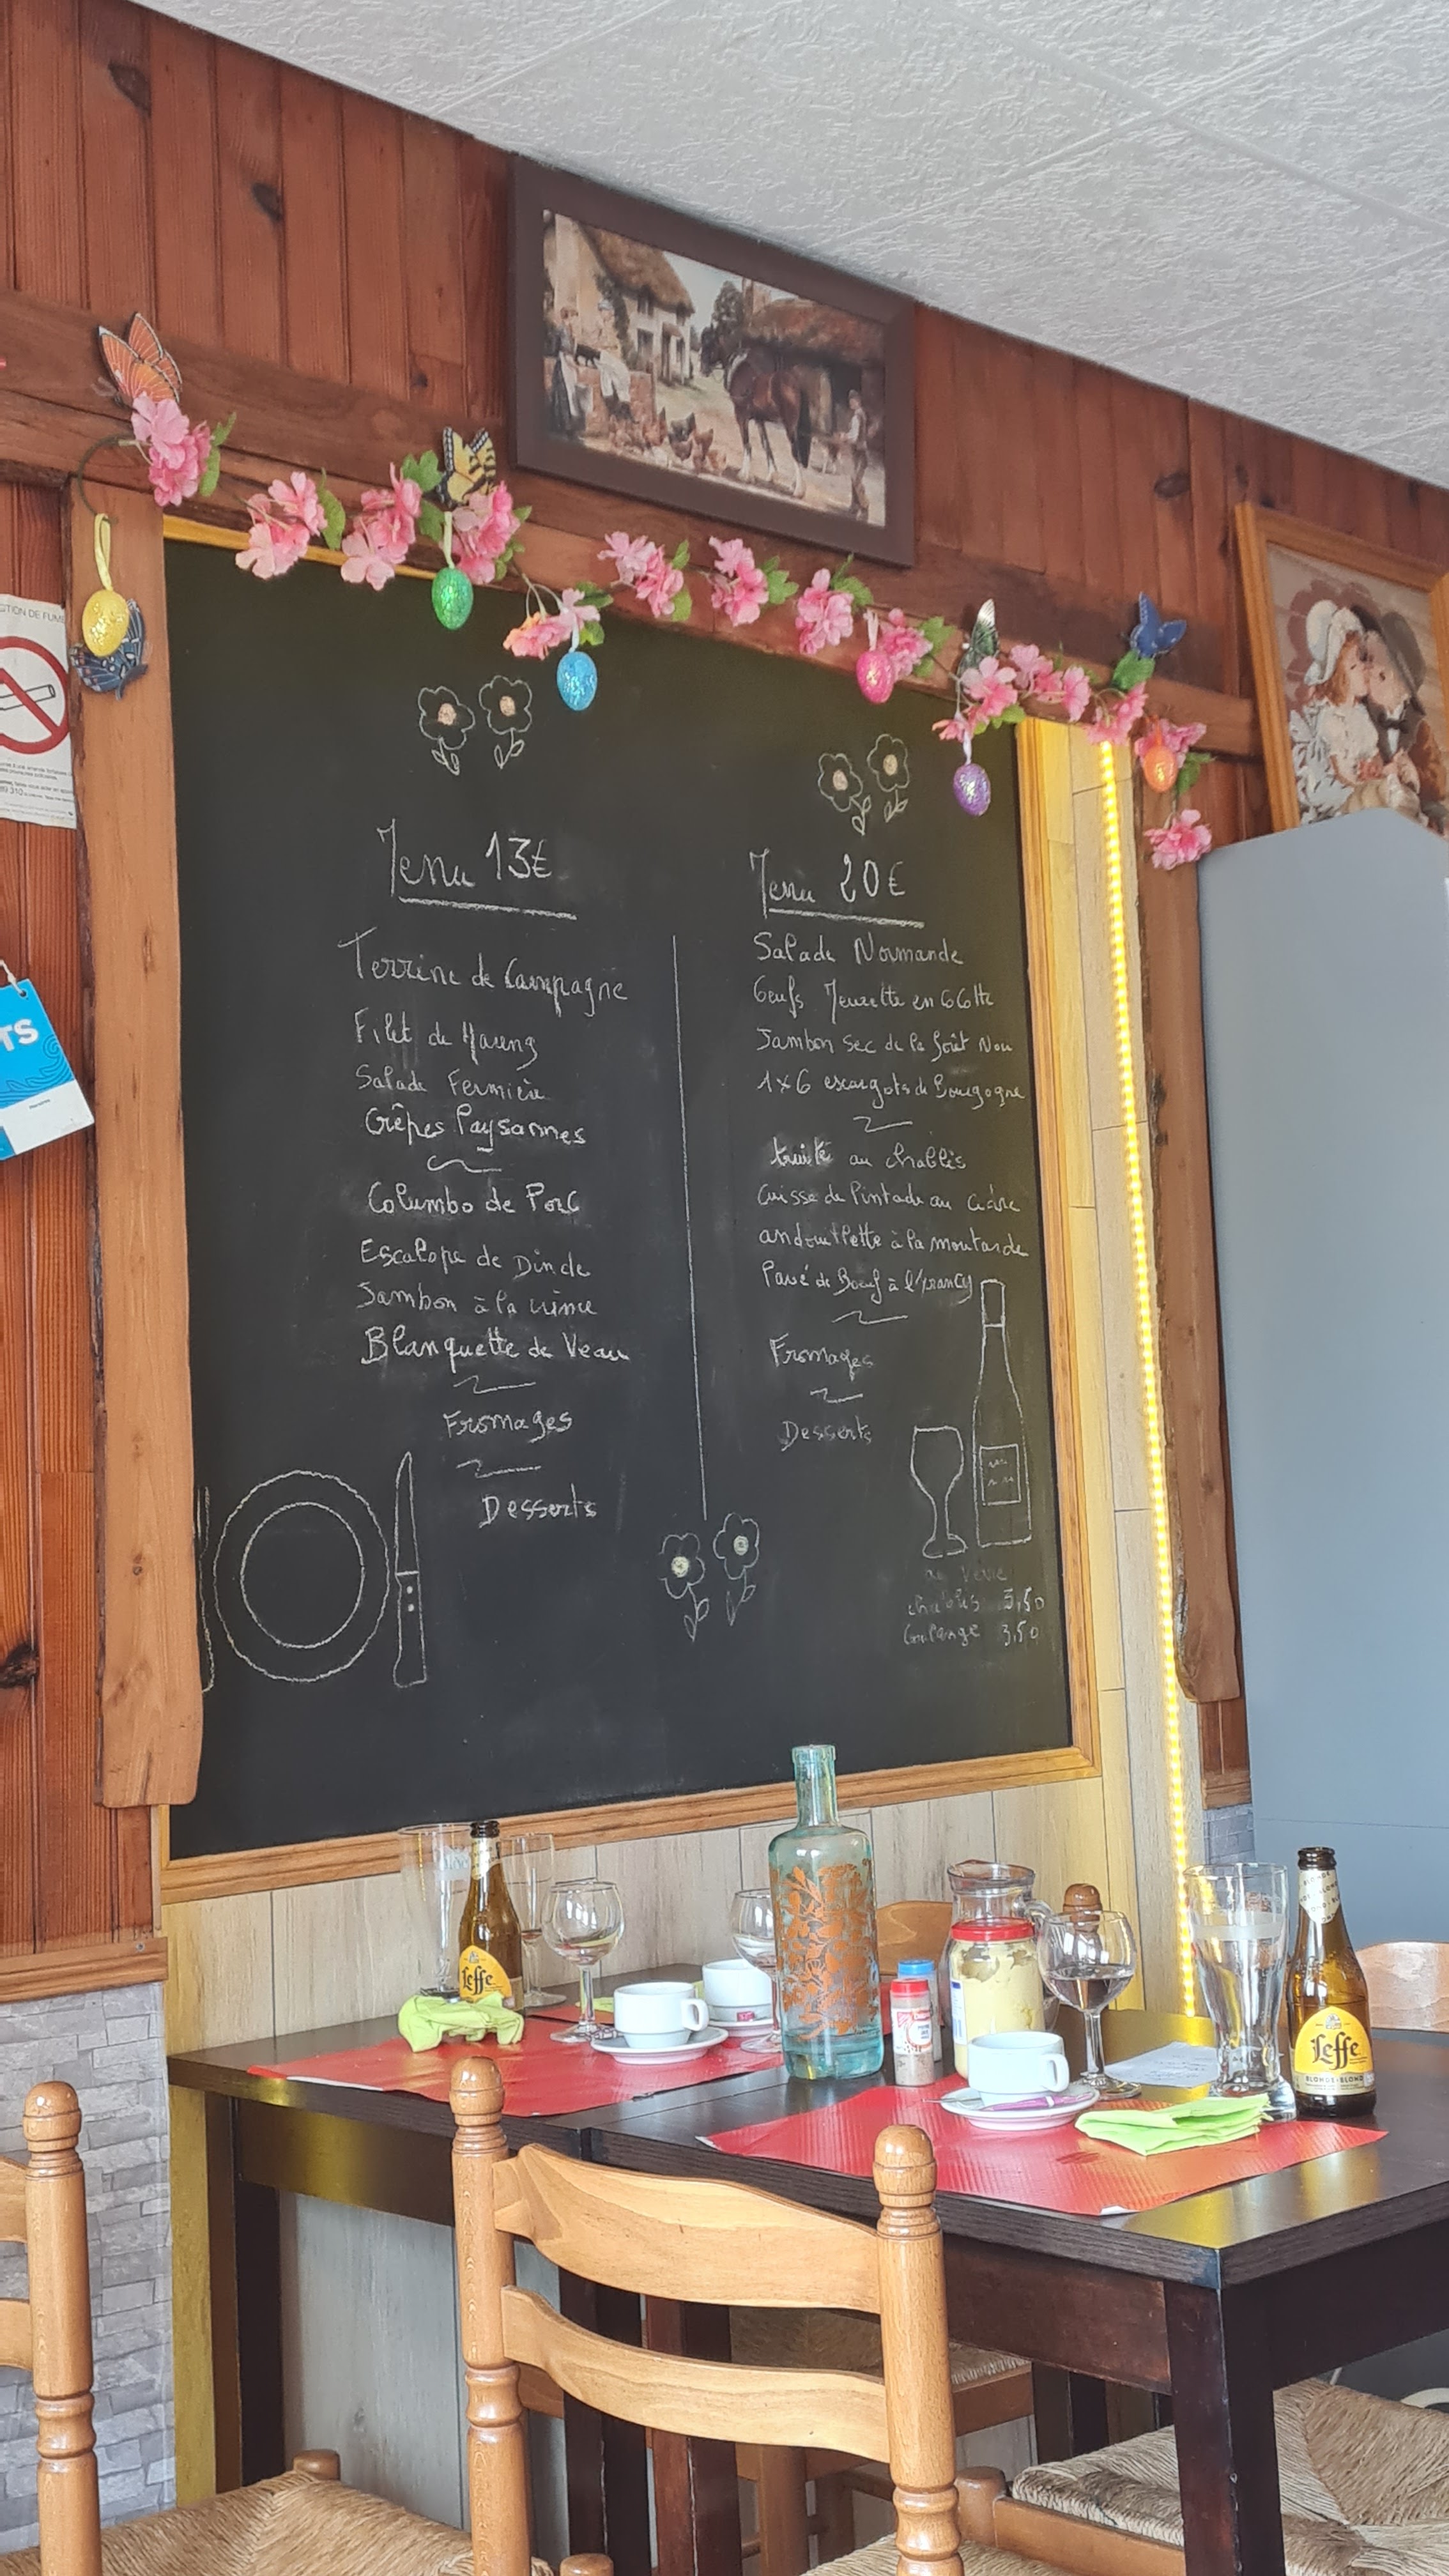 Menu 13€
Terrine de Campagne
Filet de Hareng
Salade Fermière
Crêpes Paysannes
Columbo de Porc
Escalope de Dinde
Jambon à la crème
Blanquette de Veau
Fromages
Desserts
Menu 20€
Salade Normande
Oeufs Meurette en cocotte
Jambon sec de la forêt Noi
1x6 escargots de Bourgogne
truite au chablis
Cuisse de Pintade au cidre
andouillette à la moutarde
Pavé de Boeuf à l'Irancy
Fromages
Desserts
au verre
chablis 5,50
Coulange 3,50
CTION DE FUME
TS
Leffe
Leffe
BLONDE • BLOND